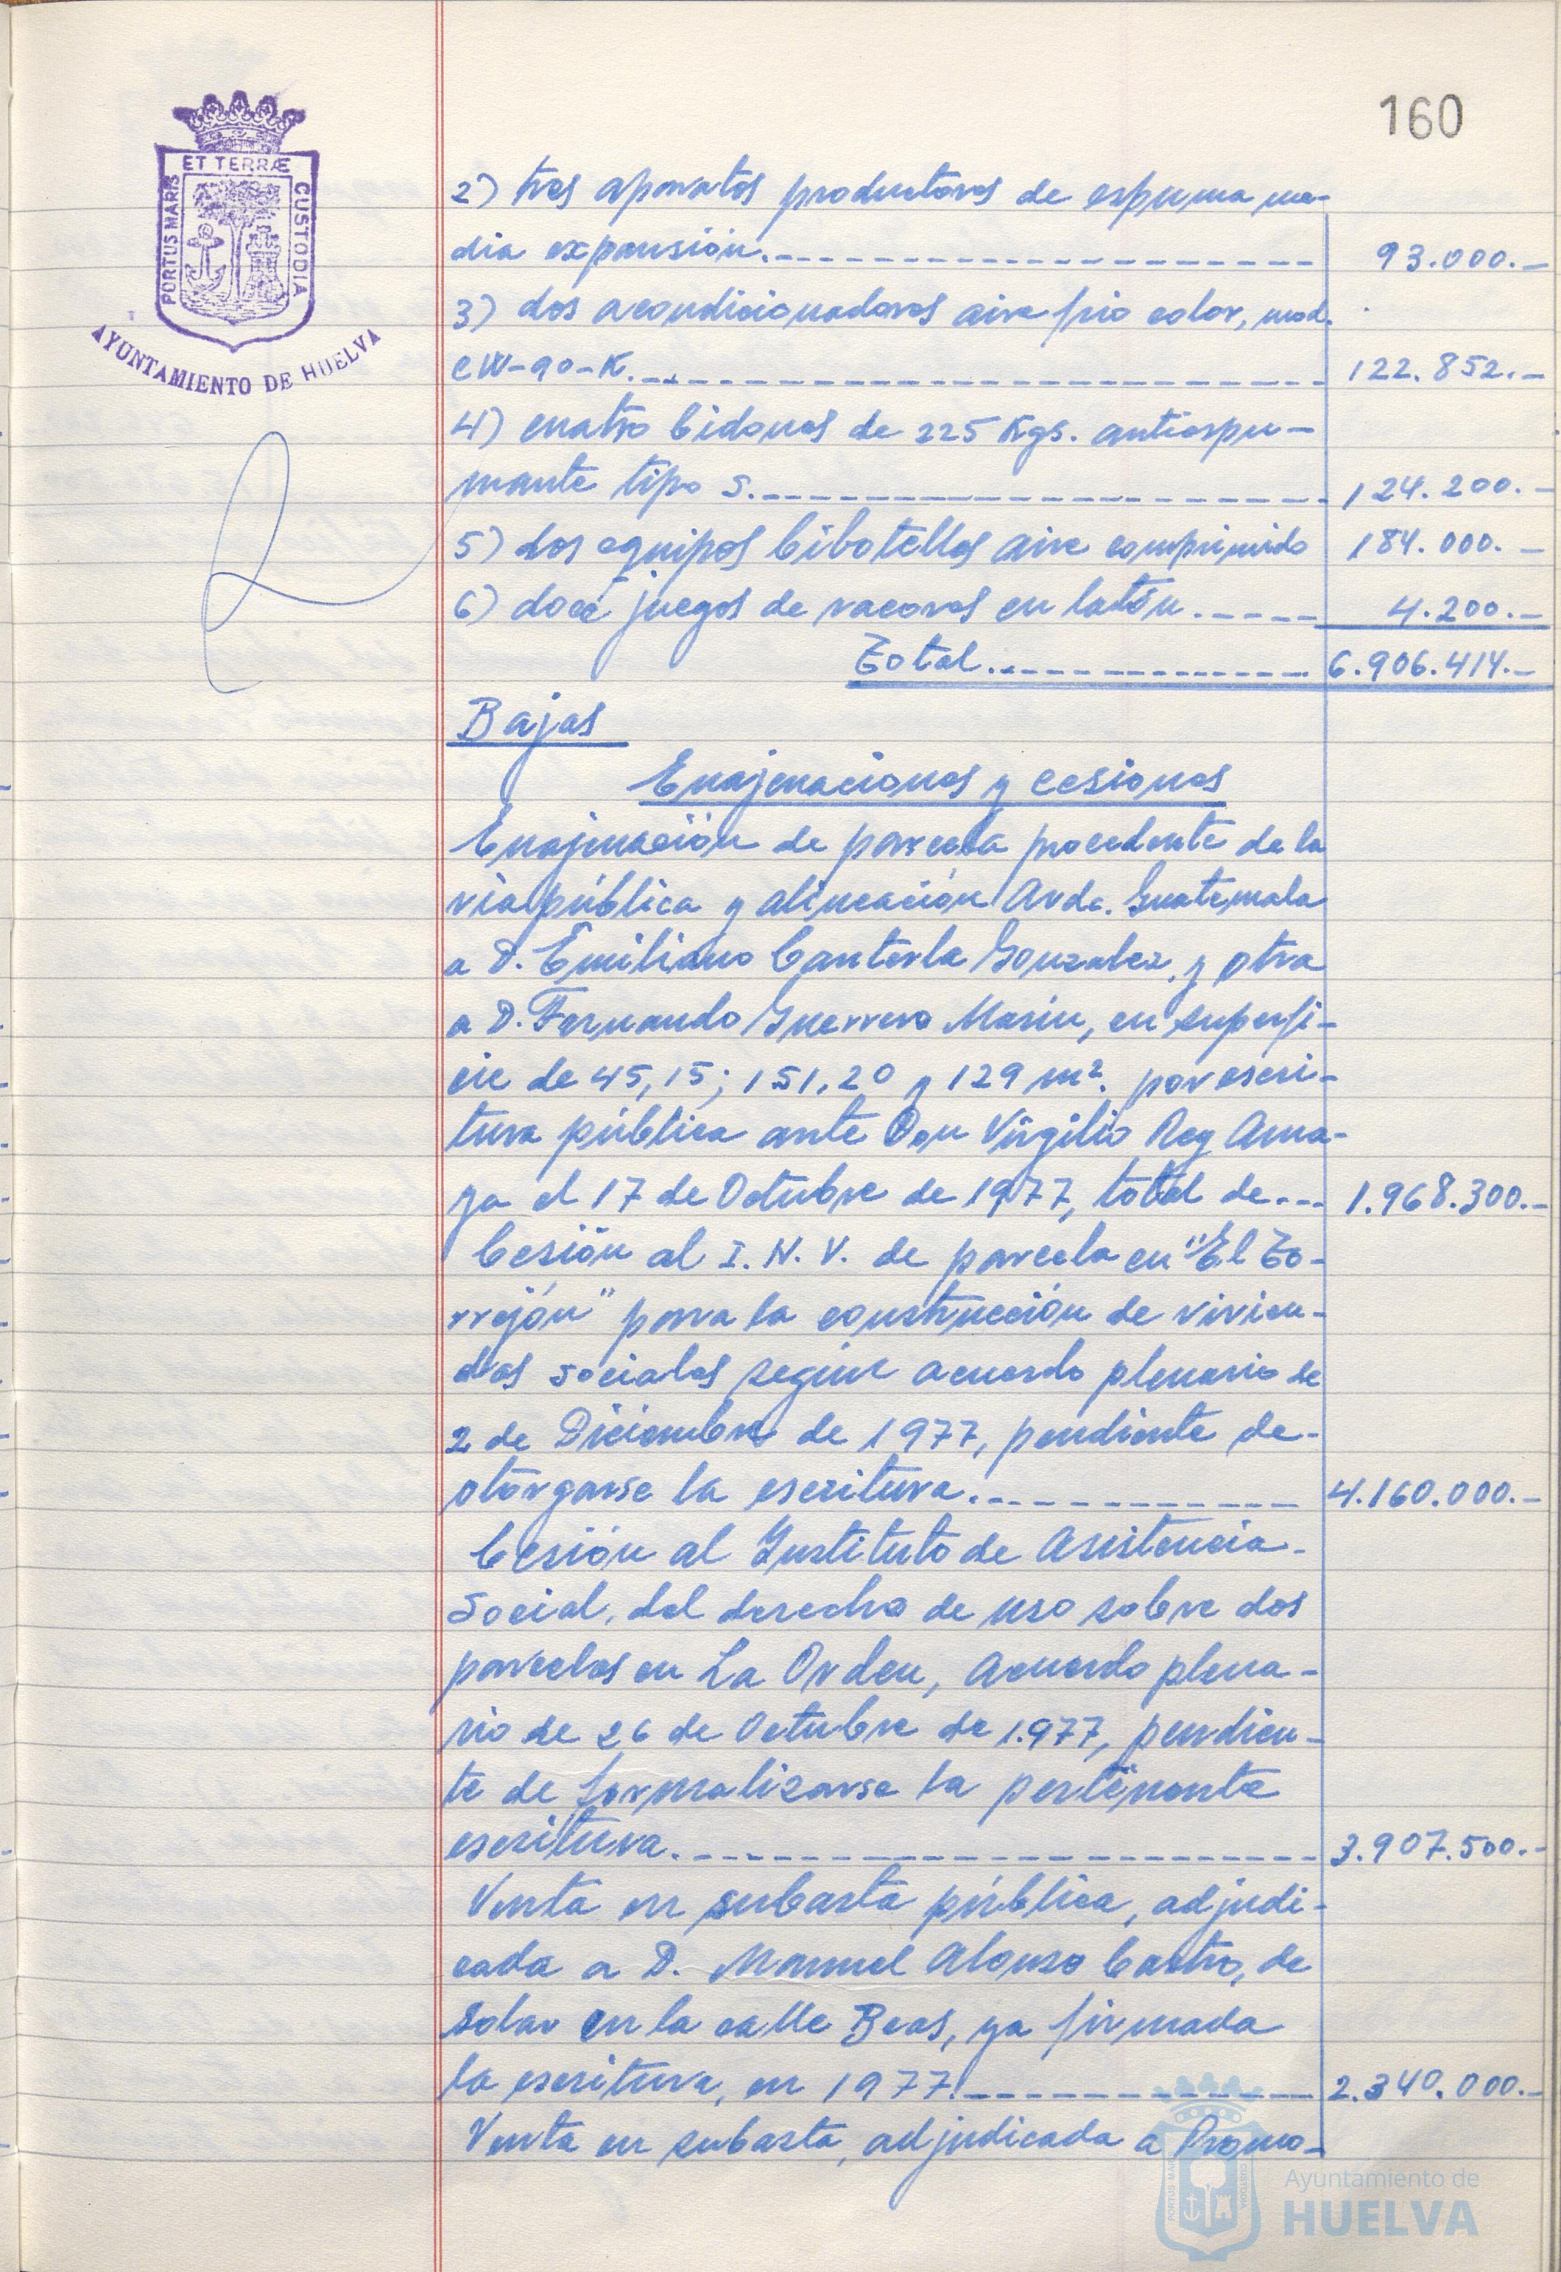 160
ET TERRÆ
PORTUS MARIS
CUSTODIA
AYUNTAMIENTO DE HUELVA
2) tres aparatos productores de espuma me-
dia expansión. 93.000.-
3) dos acondicionadores aire frio calor, mod.
CW-90-K. 122.852.-
4) cuatro bidones de 225 Kgs. antiespu-
mante tipo S. 124.200.-
5) dos equipos bibotellas aire comprimido 184.000.-
6) doce juegos de racores en latón. 4.200.-
Total. 6.906.414.-
Bajas
Enajenaciones y cesiones
Enajenación de parcela procedente de la
via pública y alineación Avda. Guatemala
a D. Emiliano Canterla Gonzalez, y otra
a D. Fernando Guerrero Marin, en superfi-
cie de 45,15; 151,20 y 129 m². por escri-
tura pública ante Don Virgilio Rey Ama-
ya el 17 de Octubre de 1977, total de 1.968.300.-
Cesión al I.N.V. de parcela en "El To-
rrejón" para la construcción de vivien-
das sociales según acuerdo plenario de
2 de Diciembre de 1977, pendiente de-
otorgarse la escritura. 4.160.000.-
Cesión al Instituto de Asistencia-
Social, del derecho de uso sobre dos
parcelas en La Orden, Acuerdo plena-
rio de 26 de Octubre de 1.977, pendien-
te de formalizarse la pertinente
escritura. 3.907.500.-
Venta en subasta pública, adjudi-
cada a D. Manuel Alonso Castro, de
solar en la calle Beas, ya firmada
la escritura, en 1977. 2.340.000.-
Venta en subasta, adjudicada a Promo-
Ayuntamiento de
HUELVA